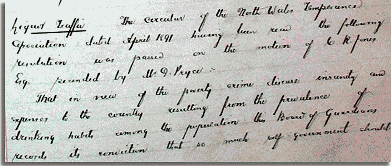 Liquor Traffic The circular of the North Wales Temperance
Association dated April 1891 having been read the following
resolution was passed on the motion of C R Jones
Esq seconded by Mr D. Pryce.
That in view of the poverty crime disease insanity and
expenses to the country resulting from the prevalence of
drinking habits among the population this Board of Guardians
records its conviction that so much self government should